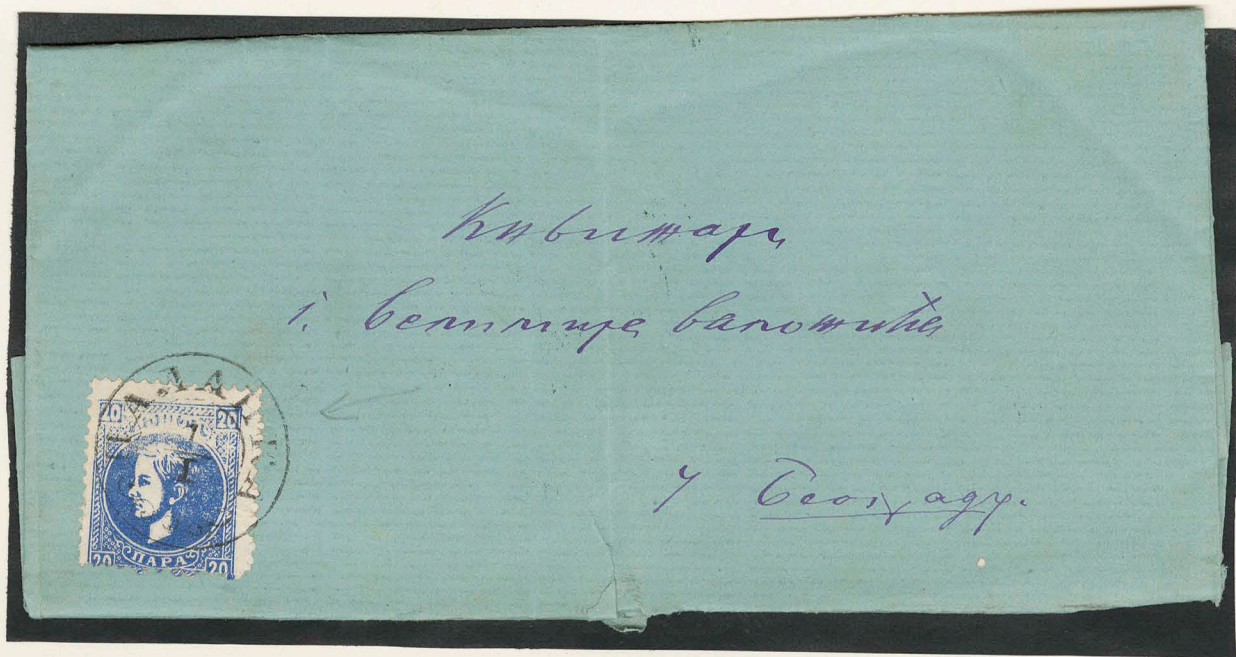 Књижари
г. Велимира Валожића
у Београду.
20 20
I
20 ПАРА 20